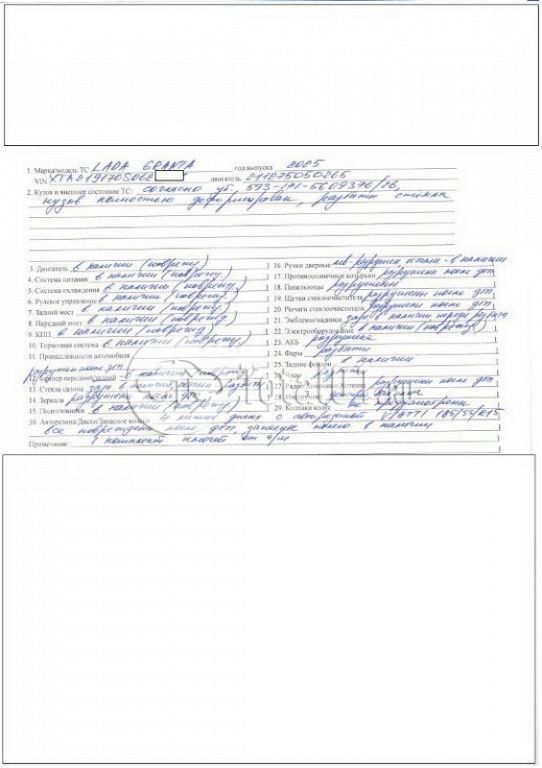 1. Марка/модель ТС LADA GRANTA год выпуска 2025
VIN XTA219170S002 двигатель 211875050265
2. Кузов и внешнее состояние ТС: согласно уб. 593-171-5609370/26,
кузов полностью деформирован, разбиты стёкла
3. Двигатель в наличии (поврежд)
4. Система питания в наличии (поврежд)
5. Система охлаждения в наличии (поврежд)
6. Рулевое управление в наличии (поврежд)
7. Задний мост в наличии (поврежд)
8. Передний мост в наличии (поврежд)
9. КПП в наличии (поврежд)
10. Тормозная система в наличии (поврежд)
11. Принадлежности автомобиля
разрушен после дтп
12. Бампер передний/задний в наличии
13. Стекла салона в наличии разбиты
14. Зеркала разрушены после дтп
15. Подголовники в наличии (поврежд)
16. Ручки дверные лев разрушен, остальн - в наличии
17. Противосолнечные козырьки разрушены после дтп
18. Пепельницы разрушены
19. Щетки стеклоочистителя разрушены после дтп
20. Рычаги стеклоочистителя разрушены после дтп
21. Эмблемы/надписи задн в наличии передн разбита
22. Электрооборудование в наличии (поврежд)
23. АКБ разрушена
24. Фары разбиты
25. Задние фонари в наличии
26. Часы
27. разрушены после дтп
28.
29. Колпаки колес не предусмотрены
30. Авторезина/Диски/Запасное колесо 4 литых диска с авторезиной VIATTI 185/55/R15
все повреждены после дтп, запасное колесо в наличии
Примечание 1 комплект ключей от а/м